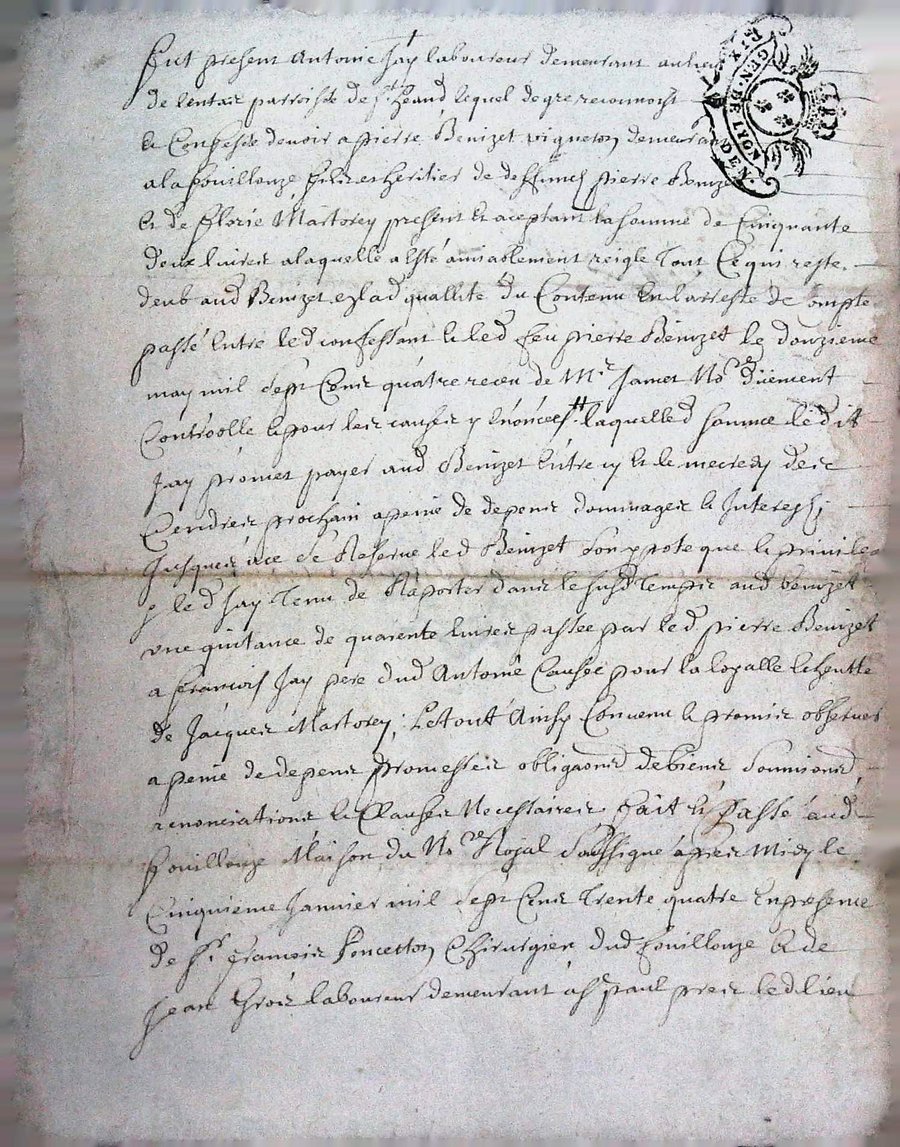 SIX DEN.
GEN. DE LYON
Fut present Antoine Jay laboureur demeurant au lieu
de parroisse de St heand lequel de gre reconnoist
et Confesse devoir a pierre Benizet vigneron demeurant
a la fouillouze fils et heritier de deffunct pierre Benizet
et de florie Martorey present et aceptant la somme de Cinquante
deux livres a laquelle a esté amiablement reigle tout Ce qui reste
deub aud Benizet esd quallité du Contenu En larresté de Compte
passé Entre led confessant et led feu pierre Benizet le douzieme
may mil sept Cens quatre receu de Me Jamet Nore düement
Controolle et pour les causes y Enoncees laquelled somme ledit
Jay promet payer aud Benizet Entre cy et le mecredy des
Cendres prochain a peine de depens dommages et Interests
Jusques a ce se Reserve led Benizet son ypoteque et privile
ge led Jay Tenu de Raporter dans le susd Temps aud benizet
une quitance de quarente livres passee par led pierre Benizet
a francois Jay pere dud Antoine Causée pour la loyalle Echeutte
de Jacques Martorey; Le tout Ainsy Convenu et promis observer
a peine de depens promesses obligaons de biens soumions
renonciations et Clauses Necessaires fait et Passé aud
fouillouze Maison du Nore Royal Soussigné apres Midy le
Cinquieme Janvier mil sept Cens Trente quatre En presence
de Sr francois Poncetton Chirurgien dud fouillouze et de
Jean laboureur demeurant a St paul pres led lieu